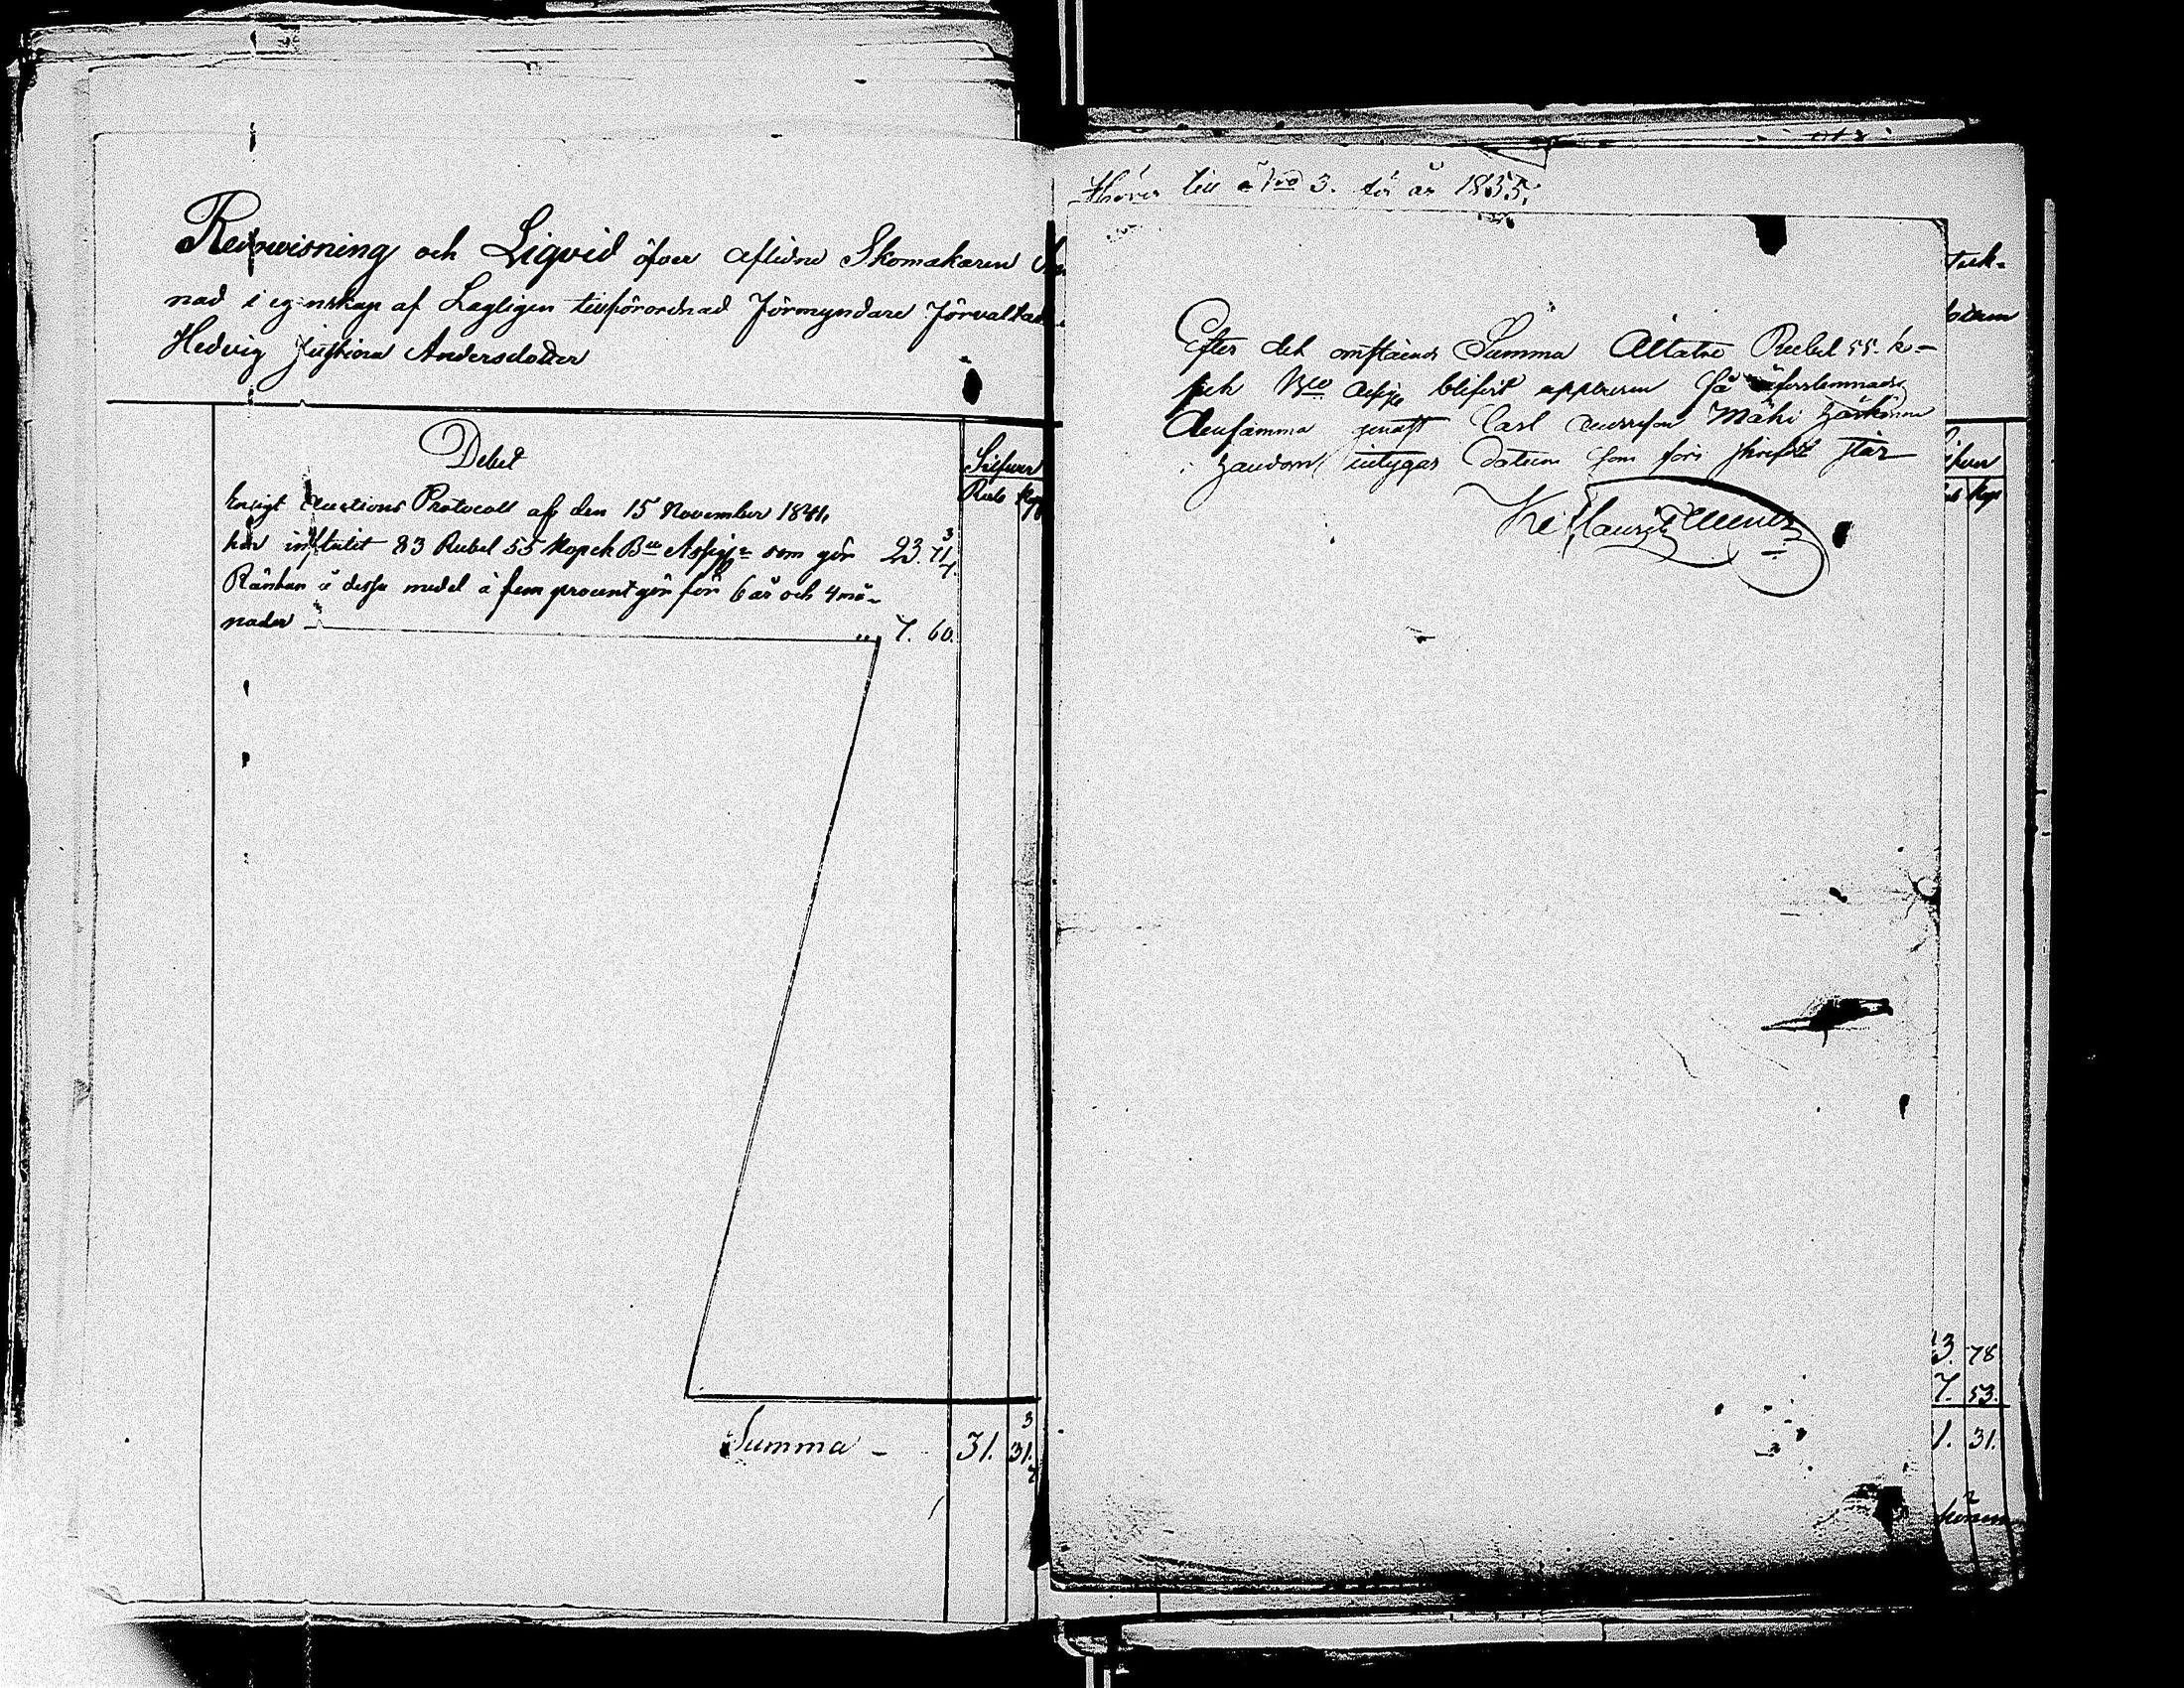 Redovisning och Liqvid öfver aflidne Skomakaren
nad i egenskap af Lagligen tillförordnad Förmyndare Förvaltad
Hedvig Justina Andersdotter
Debet
Silfver
Rub Kop
Enligt Auctions Protocoll af den 15 November 1841,
har influtit 83 Rubel 55 Kopek Bco Assig: som gör 23. 71 3/7.
Räntan å dessa medel à fem procent gör för 6 år och 4 må-
nader „ 7. 60.
Summa - 31. 31. 3/7
Hörer till No 3. för år 1855.
Efter det omstående Summa Åttatre Rubel 55. k-
pek Bco Assig blifvit uppburen så öfverlemnades
densamma genast Carl Andersson Mäki
i handom intygas datum som förr skrifvit står
Silfver
Rub Kop
3. 78
7. 53.
1. 31.